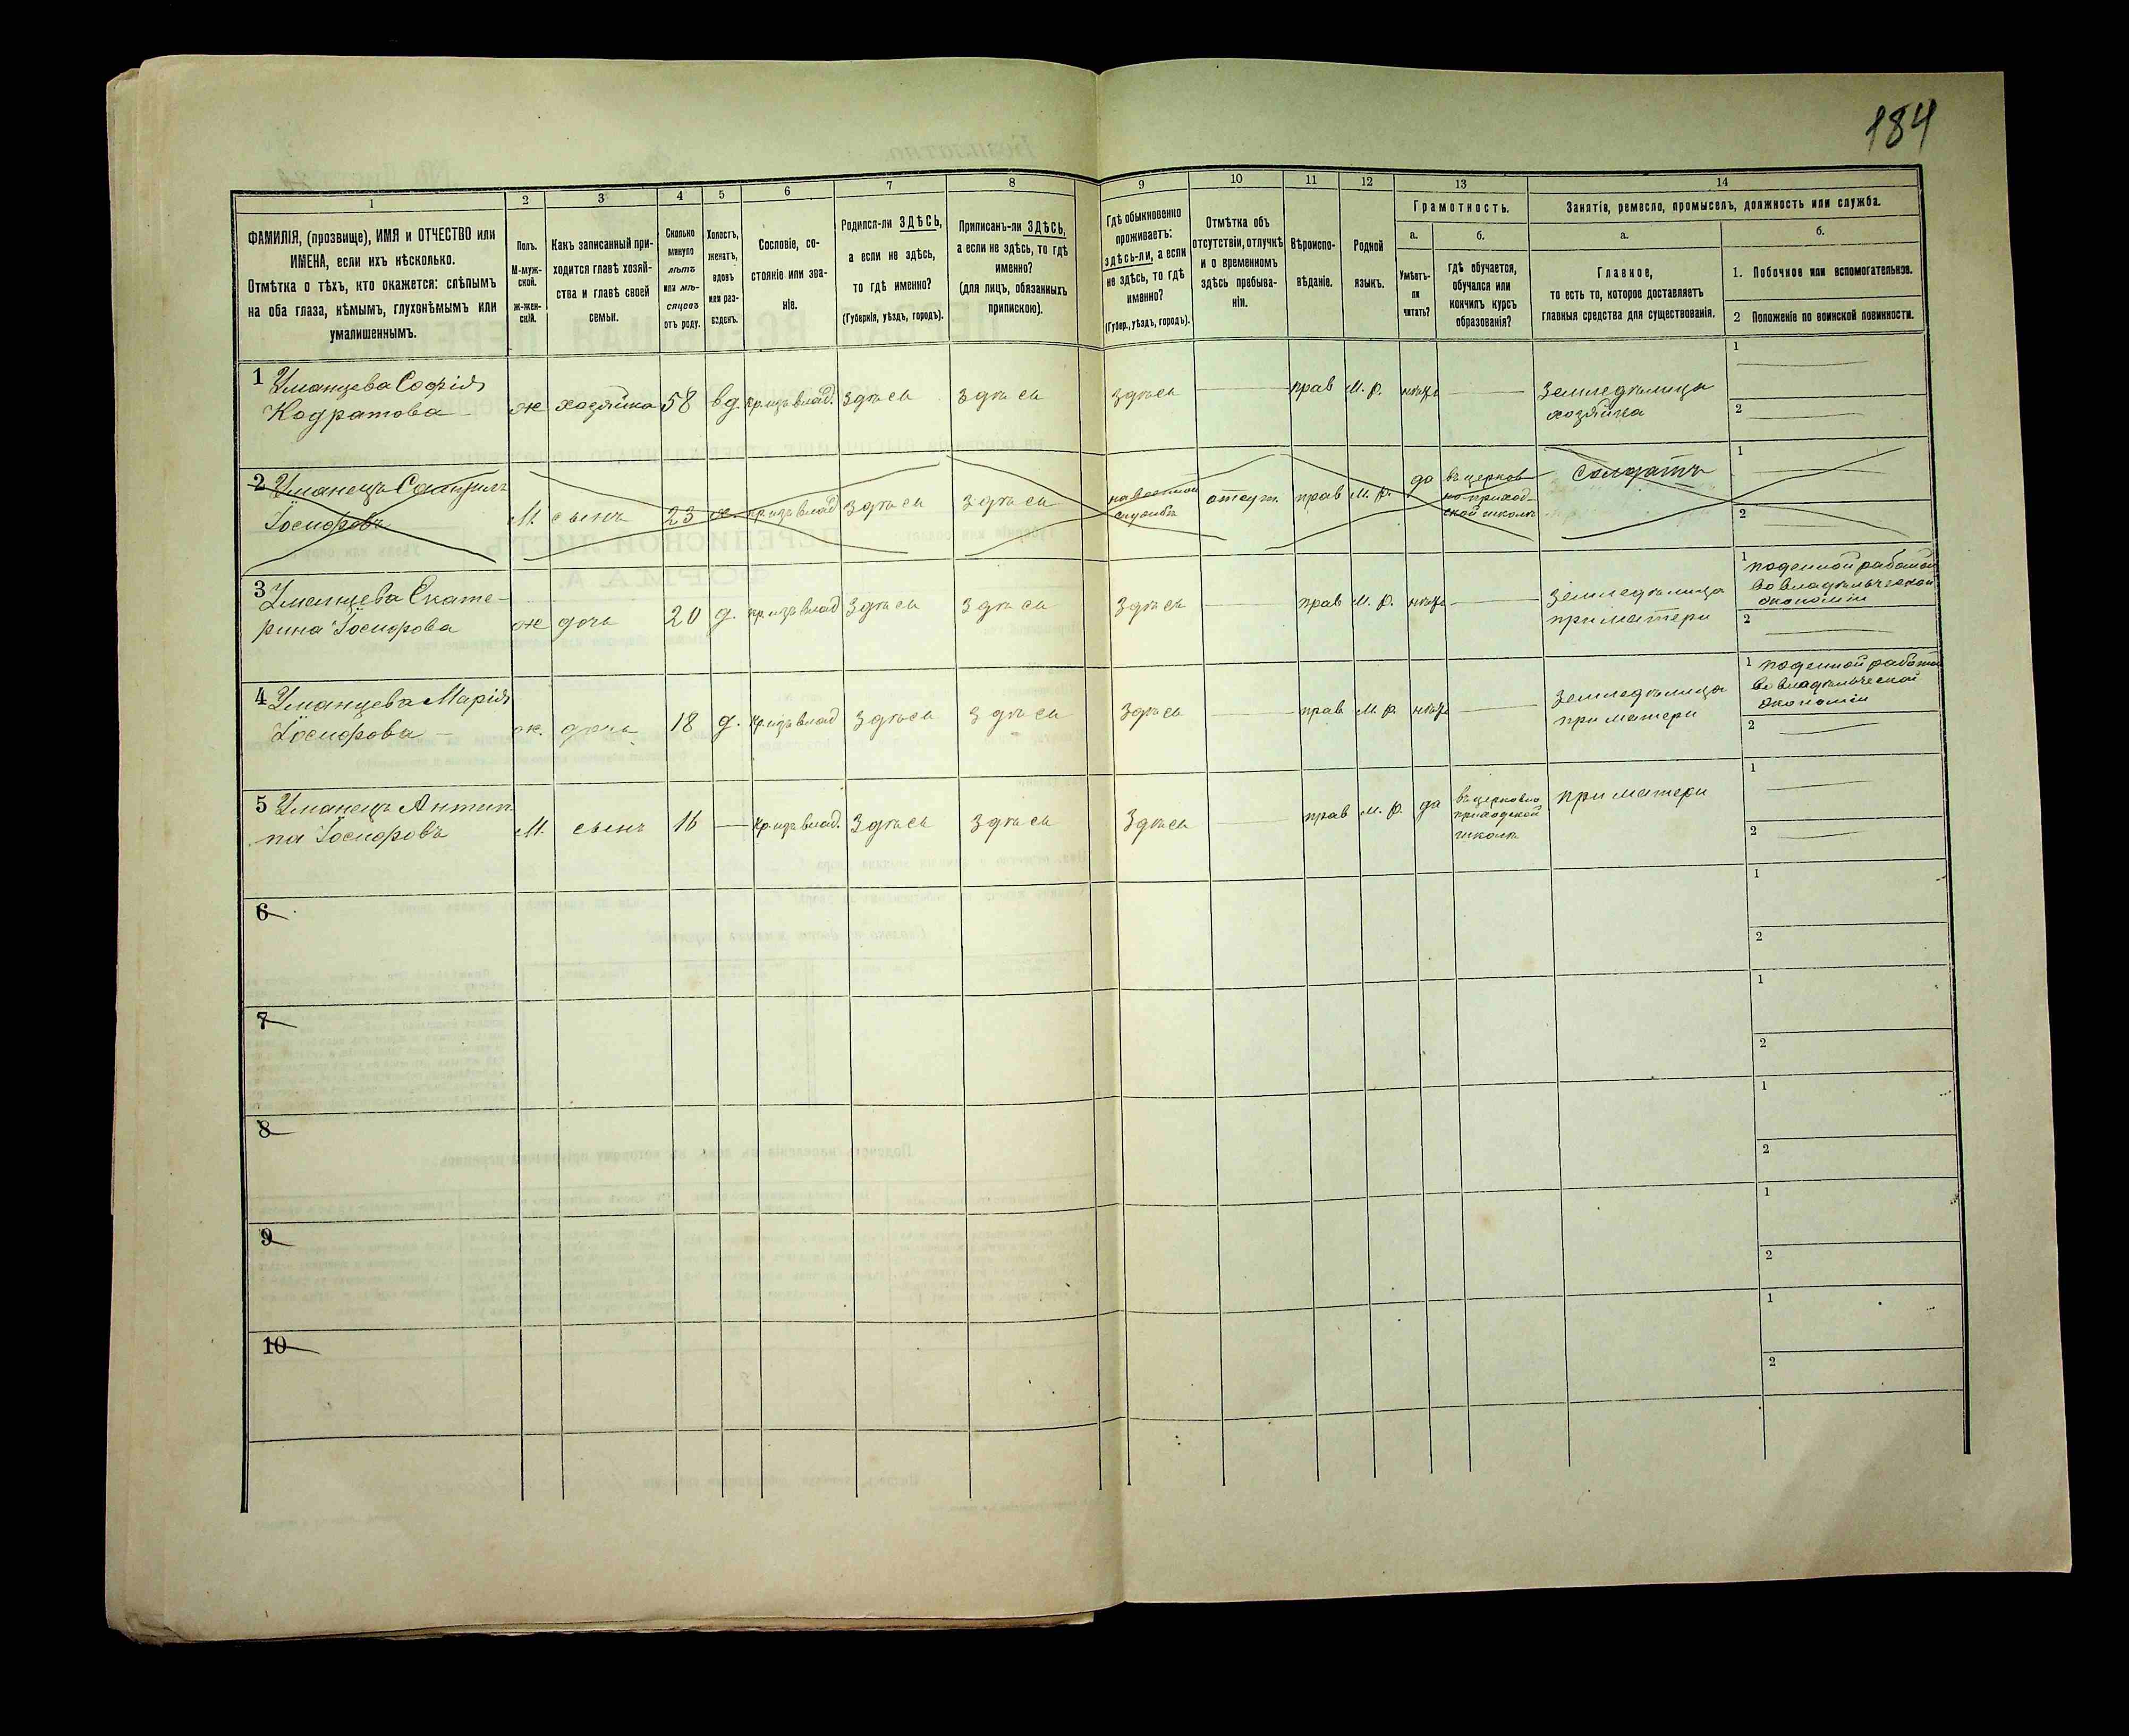 184
1
2
3
4
5
6
7
8
9
10
11
12
13
14
ФАМИЛІЯ, (прозвище), ИМЯ и ОТЧЕСТВО или
ИМЕНА, если ихъ нѣсколько.
Отмѣтка о тѣхъ, кто окажется: слѣпымъ
на оба глаза, нѣмымъ, глухонѣмымъ или
умалишеннымъ.
Полъ.
М-муж-
ской.
Ж-жен-
скій.
Какъ записанный при-
ходится главѣ хозяй-
ства и главѣ своей
семьи.
Сколько
минуло
лѣтъ
или мѣ-
сяцевъ
отъ роду.
Холостъ,
женатъ,
вдовъ
или раз-
веденъ.
Сословіе, со-
стояніе или зва-
ніе.
Родился-ли ЗДѢСЬ,
а если не здѣсь,
то гдѣ именно?
(Губернія, уѣздъ, городъ).
Приписанъ-ли ЗДѢСЬ,
а если не здѣсь, то гдѣ
именно?
(для лицъ, обязанныхъ
припискою).
Гдѣ обыкновенно
проживаетъ:
здѣсь-ли, а если
не здѣсь, то гдѣ
именно?
(Губер., уѣздъ, городъ).
Отмѣтка объ
отсутствіи, отлучкѣ
и о временномъ
здѣсь пребыва-
ніи.
Вѣроиспо-
вѣданіе.
Родной
языкъ.
Грамотность.
а.
Умѣетъ-
ли
читать?
б.
гдѣ обучается,
обучался или
кончилъ курсъ
образованія?
Занятія, ремесло, промыселъ, должность или служба.
а.
Главное,
то есть то, которое доставляетъ
главныя средства для существованія.
б.
1. Побочное или вспомогательное.
2 Положеніе по воинской повинности.
1 Уманцева Софія
Кодратова
ж хозяйка 58 вд. кр. изъ влад. здѣсь здѣсь здѣсь прав м. р. нѣтъ
Земледѣлица
хозяйка
1
2
2 Уманецъ Самуилъ
Іосифовъ
М. сынъ 23 х. кр. изъ влад здѣсь здѣсь
на военной
службѣ
отсут. прав м. р. да
въ церков
но приход-
ской школѣ
Солдатъ
1
2
3 Уманцева Екате-
рина Іосифова
ж дочь 20 д. кр. изъ влад здѣсь здѣсь здѣсь прав м. р. нѣтъ
Земледѣлица
при матери
1 поденной работой
во владѣльческой
економіи
2
4 Уманцева Марія
Іосифова
ж. дочь 18 д. кр. изъ влад здѣсь здѣсь здѣсь прав м. р. нѣтъ
Земледѣлица
при матери
1 поденной работой
во владѣльческой
економіи
2
5 Уманецъ Антип
па Іосифовъ
М. сынъ 16 — кр. изъ влад. здѣсь здѣсь здѣсь прав м. р. да
въ церковно
приходской
школѣ
при матери
1
2
6
1
2
7
1
2
8
1
2
9
1
2
10
1
2